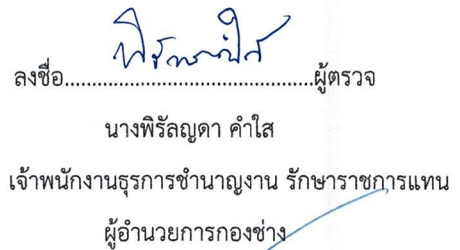 ลงชื่อ............................................ผู้ตรวจ
นางพิรัลญดา คำใส
เจ้าพนักงานธุรการชำนาญงาน รักษาราชการแทน
ผู้อำนวยการกองช่าง